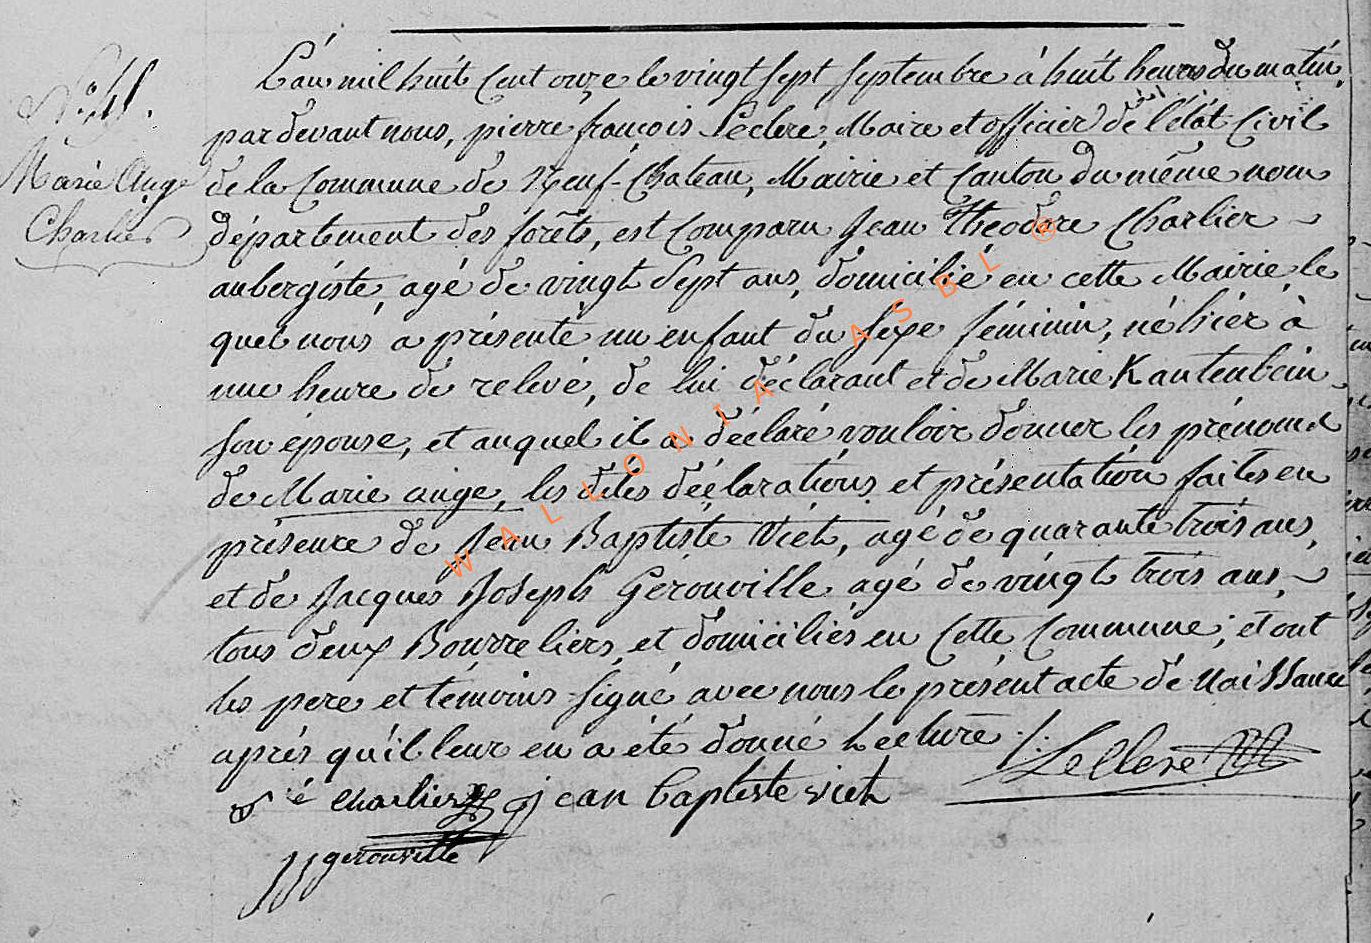 N° 41.
Marie Ange
Charlier
L'an mil huit Cent onze le vingt sept septembre à huit heures du matin,
pardevant nous, pierre françois Leclere, Maire et officier de l'état Civil
de la Commune de Neuf-Chateau, Mairie et Canton du même nom
département des forêts, est Comparu Jean Theodore Charlier
aubergiste, agé de vingt Sept ans, domicilié en cette Mairie, le
quel nous a présenté un enfant du Sexe féminin, né hier à
une heure de relevé, de lui déclarant et de Marie Kautenbein
son épouse, et auquel il a déclaré vouloir donner les prénoms
de Marie ange, les dites déclarations et présentation faites en
présence de Jean Baptiste Vieh, agé de quarante trois ans,
et de Jacques Joseph Gérouville agé de vingt trois ans,
tous deux Bourreliers, et domiciliés en Cette Commune; et ont
les pere et témoins signé avec nous le présent acte de Naissance
après qu'il leur en a été donné Lecture ./.
Charlier jean baptiste vieh Leclere
JJ gerouville
WALLONIA ASBL ®